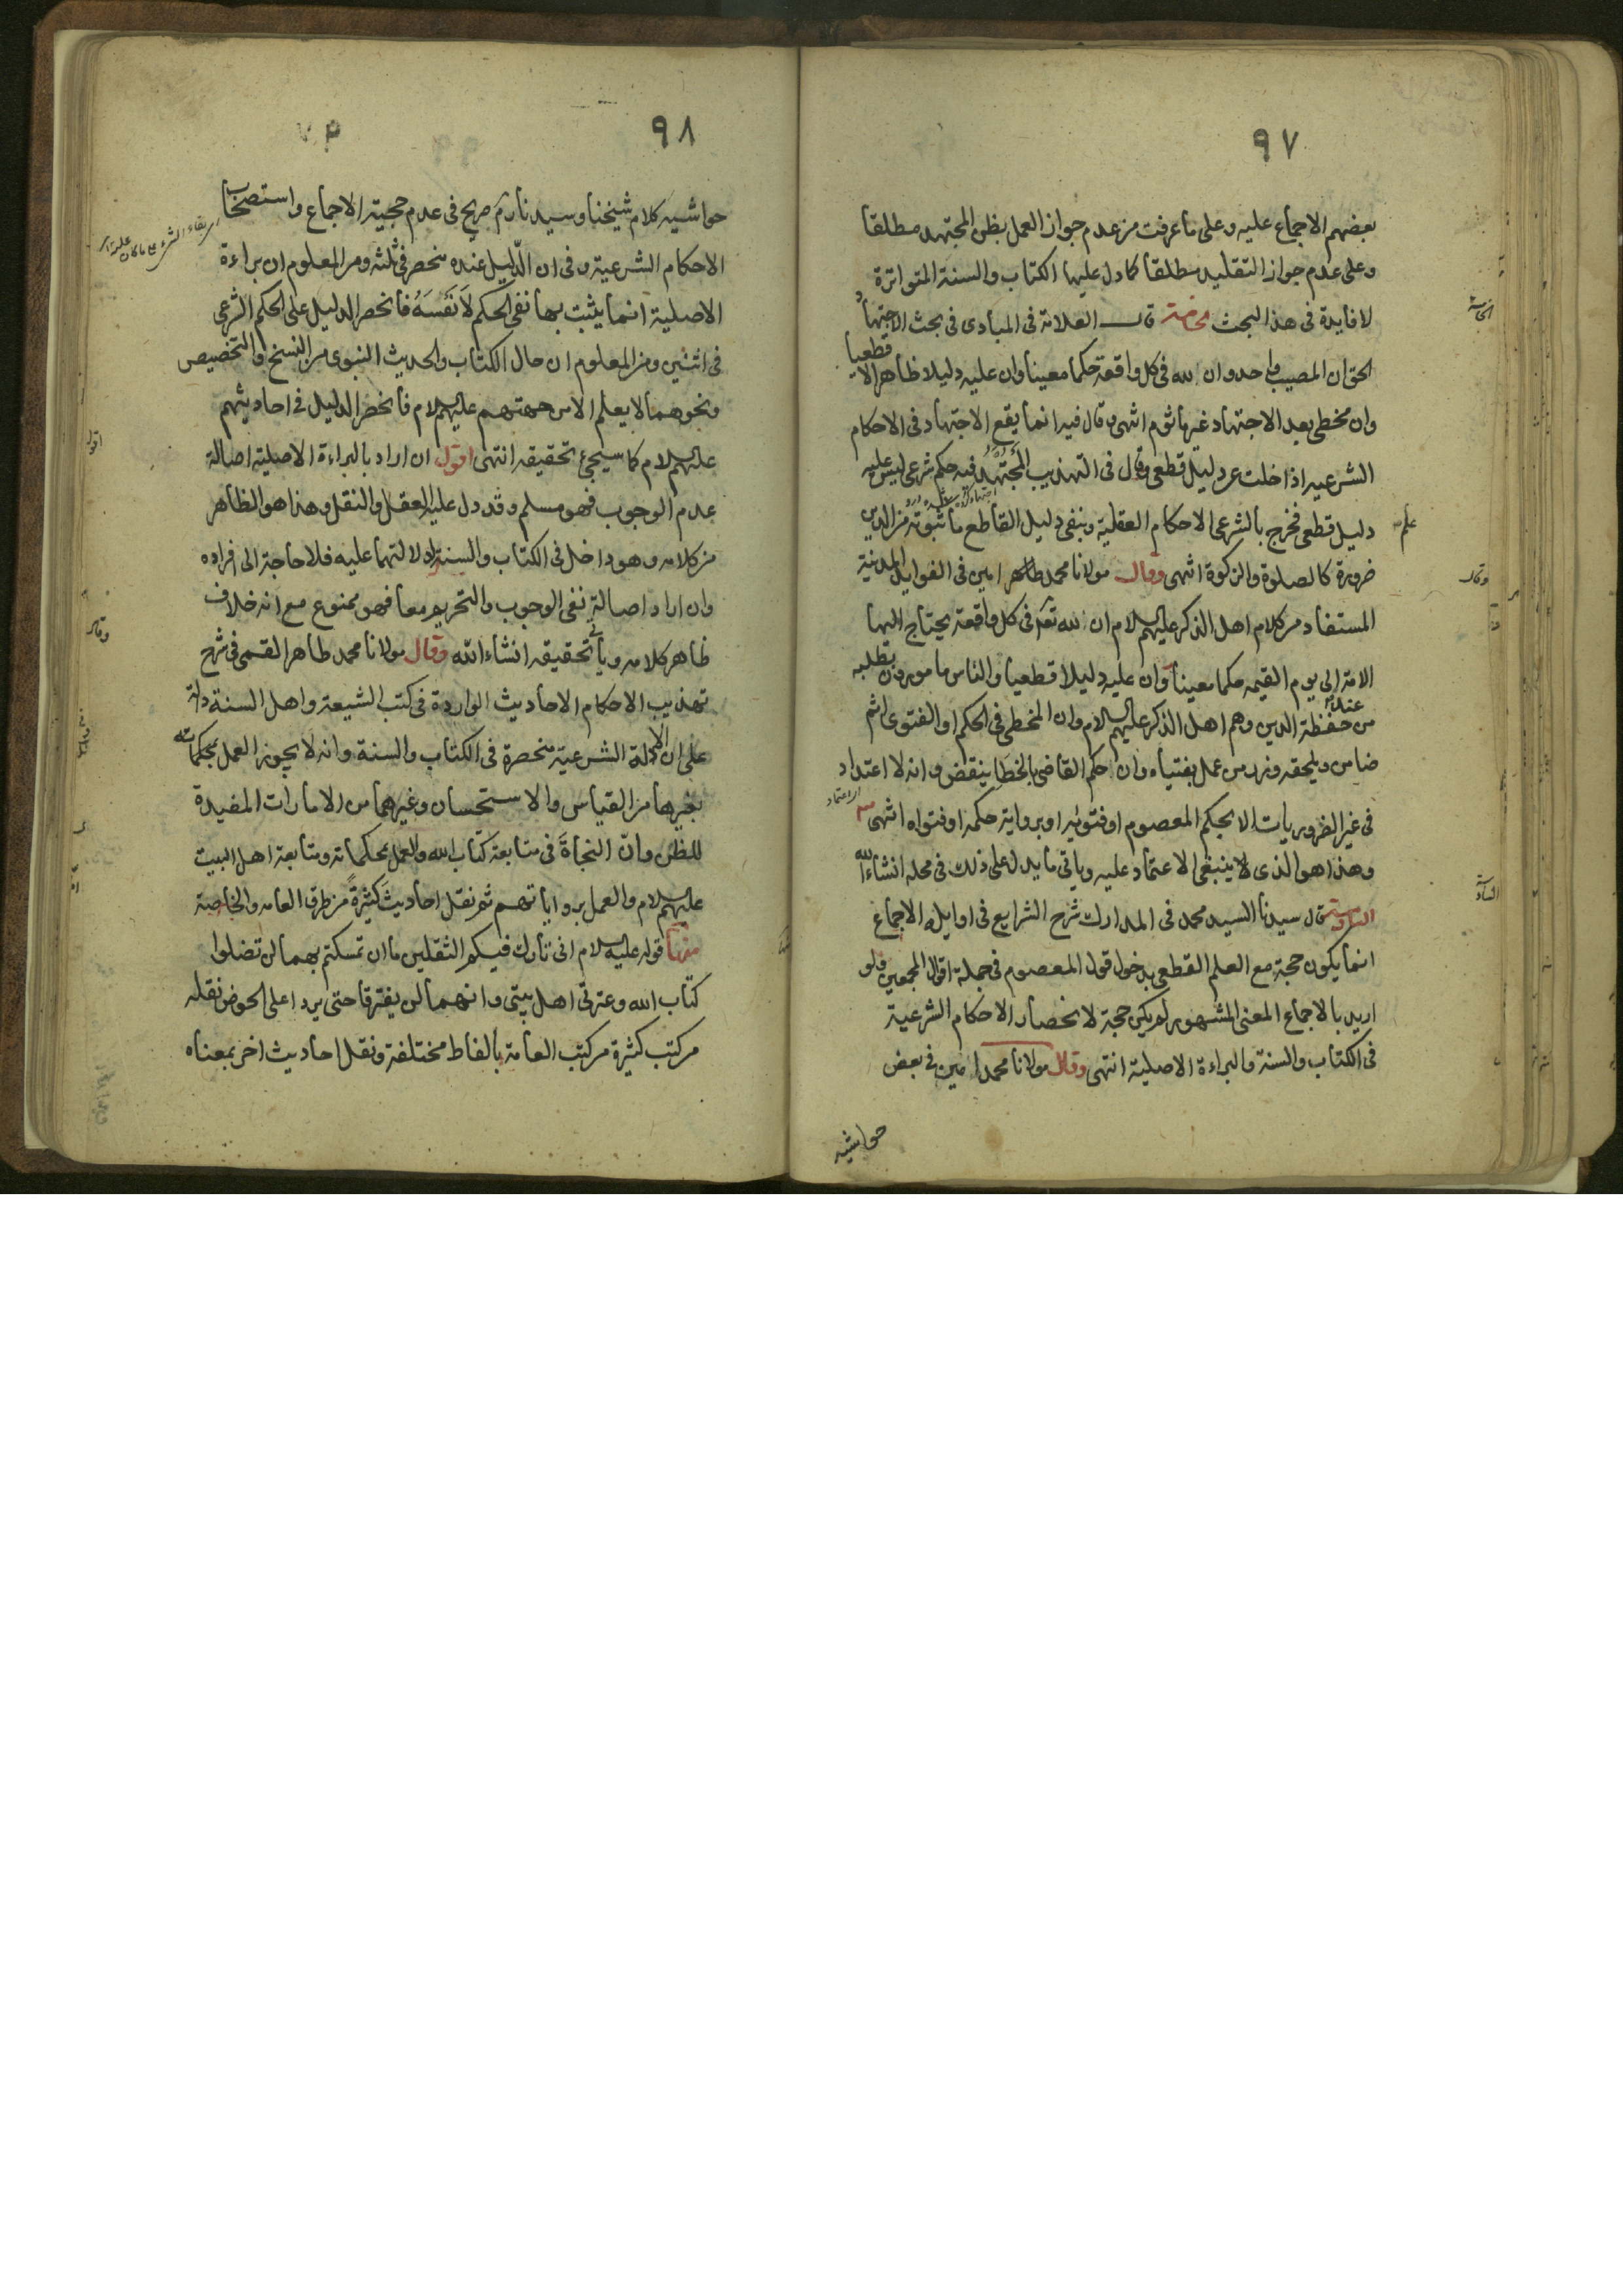 ٩٧
بعضهم الاجماع عليه وعلى ما عرفت من عدم جواز العمل بظن المجتهد مطلقا
وعلى عدم جواز التقليد مطلقا كما دل عليها الكتاب والسنة المتواترة
لا فايدة فى هذا البحث الخامسة قال العلامة فى المبادى فى بحث الاجتهاد
الحق ان المصيب واحد وان لله فى كل واقعة حكما معينا وان عليه دليلا ظاهرا لا قطعيا
وان مخطى بعد الاجتهاد غير ماثوم انتهى وقال فيه انما يقع الاجتهاد فى الاحكام
الشرعيه اذا خلت عن دليل قطعى وقال فى التهذيب المجتهد فيه حكم شرعى ليس عليه
دليل قطعى فخرج بالشرعى الاحكام العقلية وبنفى دليل القاطع ما ثبوته من الدين
ضرورة كالصلوة والزكوة انتهى وقال مولانا محمد طاهر امين فى الفوايد المدنية
المستفاد من كلام اهل الذكر عليهم السلام ان لله تعالى فى كل واقعة يحتاج اليها
الامة الى يوم القيمه حكما معينا وان عليه دليلا قطعيا والناس مامورون بطلبه
من عند حفظة الدين وهم اهل الذكر عليهم السلام وان المخطى فى الحكم او الفتوى اثم
ضامن ويلحقه وزر من عمل بفتياه وان حكم القاضى بالخطا ينقض وانه لا اعتداد
فى غير الضروريات الا بحكم المعصوم او فتويه او برواية حكمه او فتواه انتهى
وهذا هو الذى لا ينبغى الا عتماد عليه وياتى ما يدل على ذلك فى محله انشاء الله
السادسة قال سيدنا السيد محمد فى المدارك شرح الشرايع فى اوايله الاجماع
انما يكون حجة مع العلم القطعى بدخول قول المعصوم فى جملة اقوال المجمعين ولو
اريد بالاجماع المعنى المشهور لم يكن حجة لانحصار الاحكام الشرعية
فى الكتاب والسنة والبراءة الاصلية انتهى وقال مولانا محمد امين فى بعض
حواشيه
٩٨
حواشيه كلام شيخنا وسيدنا ره صريح فى عدم حجية الاجماع واستصحاب
الاحكام الشرعية وفى ان الدليل عنده منحصر فى ثلثه ومن المعلوم ان براءة
الاصلية انما يثبت بها نفى الحكم لا نفسه فانحصر الدليل على الحكم الشرعى
فى اثنين ومن المعلوم ان حال الكتاب والحديث النبوى من النسخ والتخصيص
ونحوهما لا يعلم الا من جهتهم عليهم السلام فانحصر الدليل فى احاديثهم
عليهم السلام كما سيجئ تحقيقه انتهى اقول ان اراد بالبراءة الاصليه اصالة
عدم الوجوب فهو مسلم وقد دل عليه العقل والنقل وهذا هو الظاهر
من كلامه وهو داخل فى الكتاب والسنة لدلالتهما عليه فلا حاجة الى افراده
وان اراد اصالة نفى الوجوب والتحريم معا فهو ممنوع مع انه خلاف
ظاهر كلامه وياتى تحقيقه انشاء الله وقال مولانا محمد طاهر القمى فى شرح
تهذيب الاحكام الاحاديث الواردة فى كتب الشيعة واهل السنة دالة
على ان الادلة الشرعية منحصرة فى الكتاب والسنة وانه لا يجوز العمل بمحكماته
بغيرها من القياس والاستحسان وغيرهما من الامارات المفيدة
للظن وان النجاة فى متابعة كتاب الله والعمل بمحكماته ومتابعة اهل البيت
عليهم السلام والعمل برواياتهم ثم نقل احاديث كثيرة من طرق العامه والخاصة
منها قوله عليه السلام انى تارك فيكم الثقلين ما ان تمسكتم بهما لن تضلوا
كتاب الله وعترتى اهل بيتى وانهما لن يفترقا حتى يردا على الحوض نقله
من كتب كثيرة من كتب العامة بالفاظ مختلفة ونقل احاديث اخر بمعناه